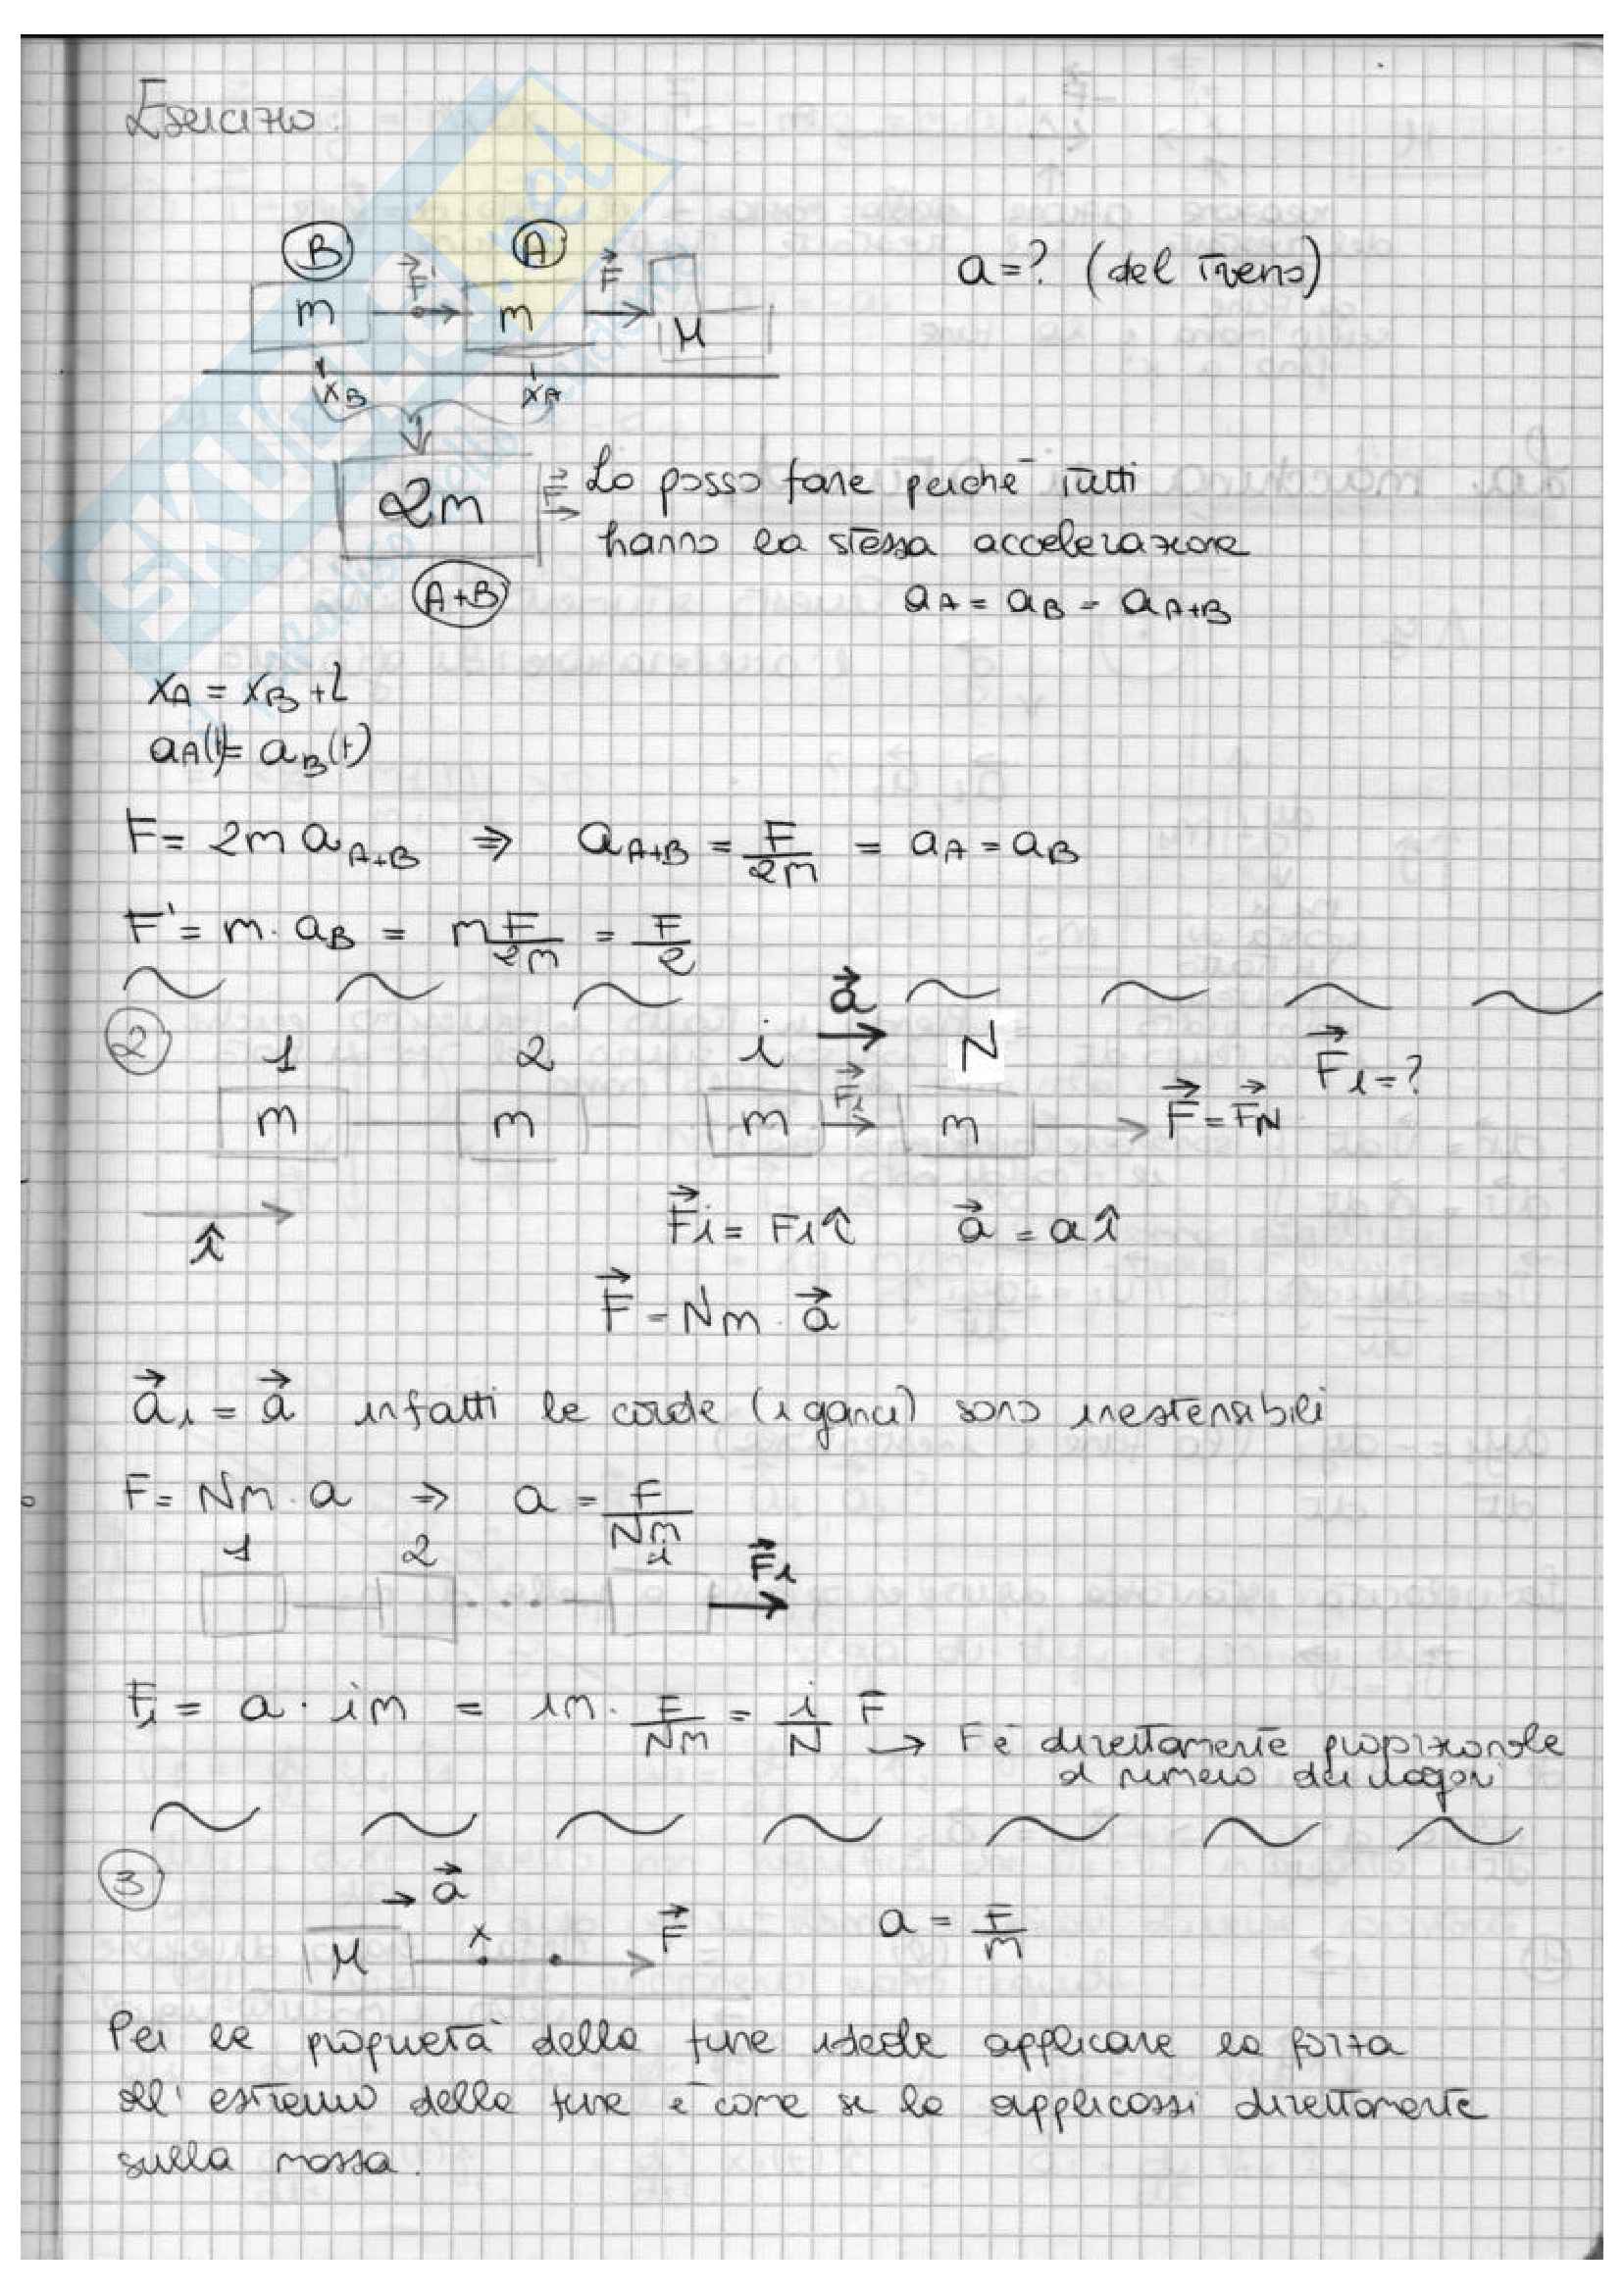 Esercizio
B A
F' F
m m M
a = ? (del treno)
xB xA
2m F Lo posso fare perché tutti
hanno la stessa accelerazione
A+B
aA = aB = aA+B
xA = xB + L
aA(t) = aB(t)
F = 2m aA+B ⇒ aA+B = F/2m = aA = aB
F' = m · aB = m F/2m = F/2
2
1 2 i a N
m m m Fi m F = FN Fi = ?
î
Fi = Fi î a = a î
F = Nm · a
ai = a infatti le corde (i ganci) sono inestensibili
F = Nm · a ⇒ a = F/Nm
1 2 i Fi
Fi = a · im = im · F/Nm = i/N F → F è direttamente proporzionale
al numero dei vagoni
3
a
M x F a = F/m
Per le proprietà della fune ideale applicare la forza
all'estremo della fune è come se la applicassi direttamente
sulla massa.
SKUOLA.net